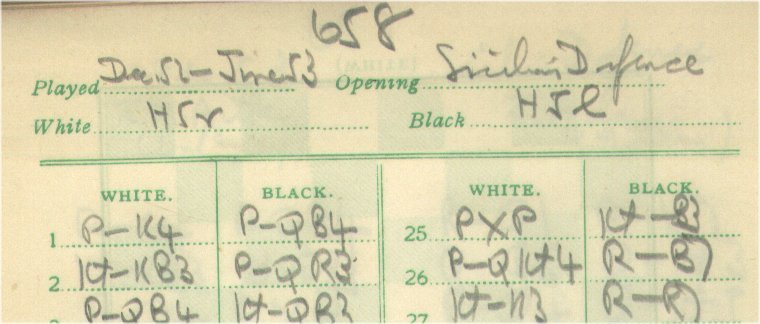 658
Played Dec.52-June53 Opening Sicilian Defence
White HSr Black HSl
WHITE. BLACK. WHITE. BLACK.
1 P-K4 P-QB4 25 PXP Kt-B3
2 Kt-KB3 P-QR3 26 P-QKt4 R-B1
P-QB4 Kt-QB3 27 Kt-K3